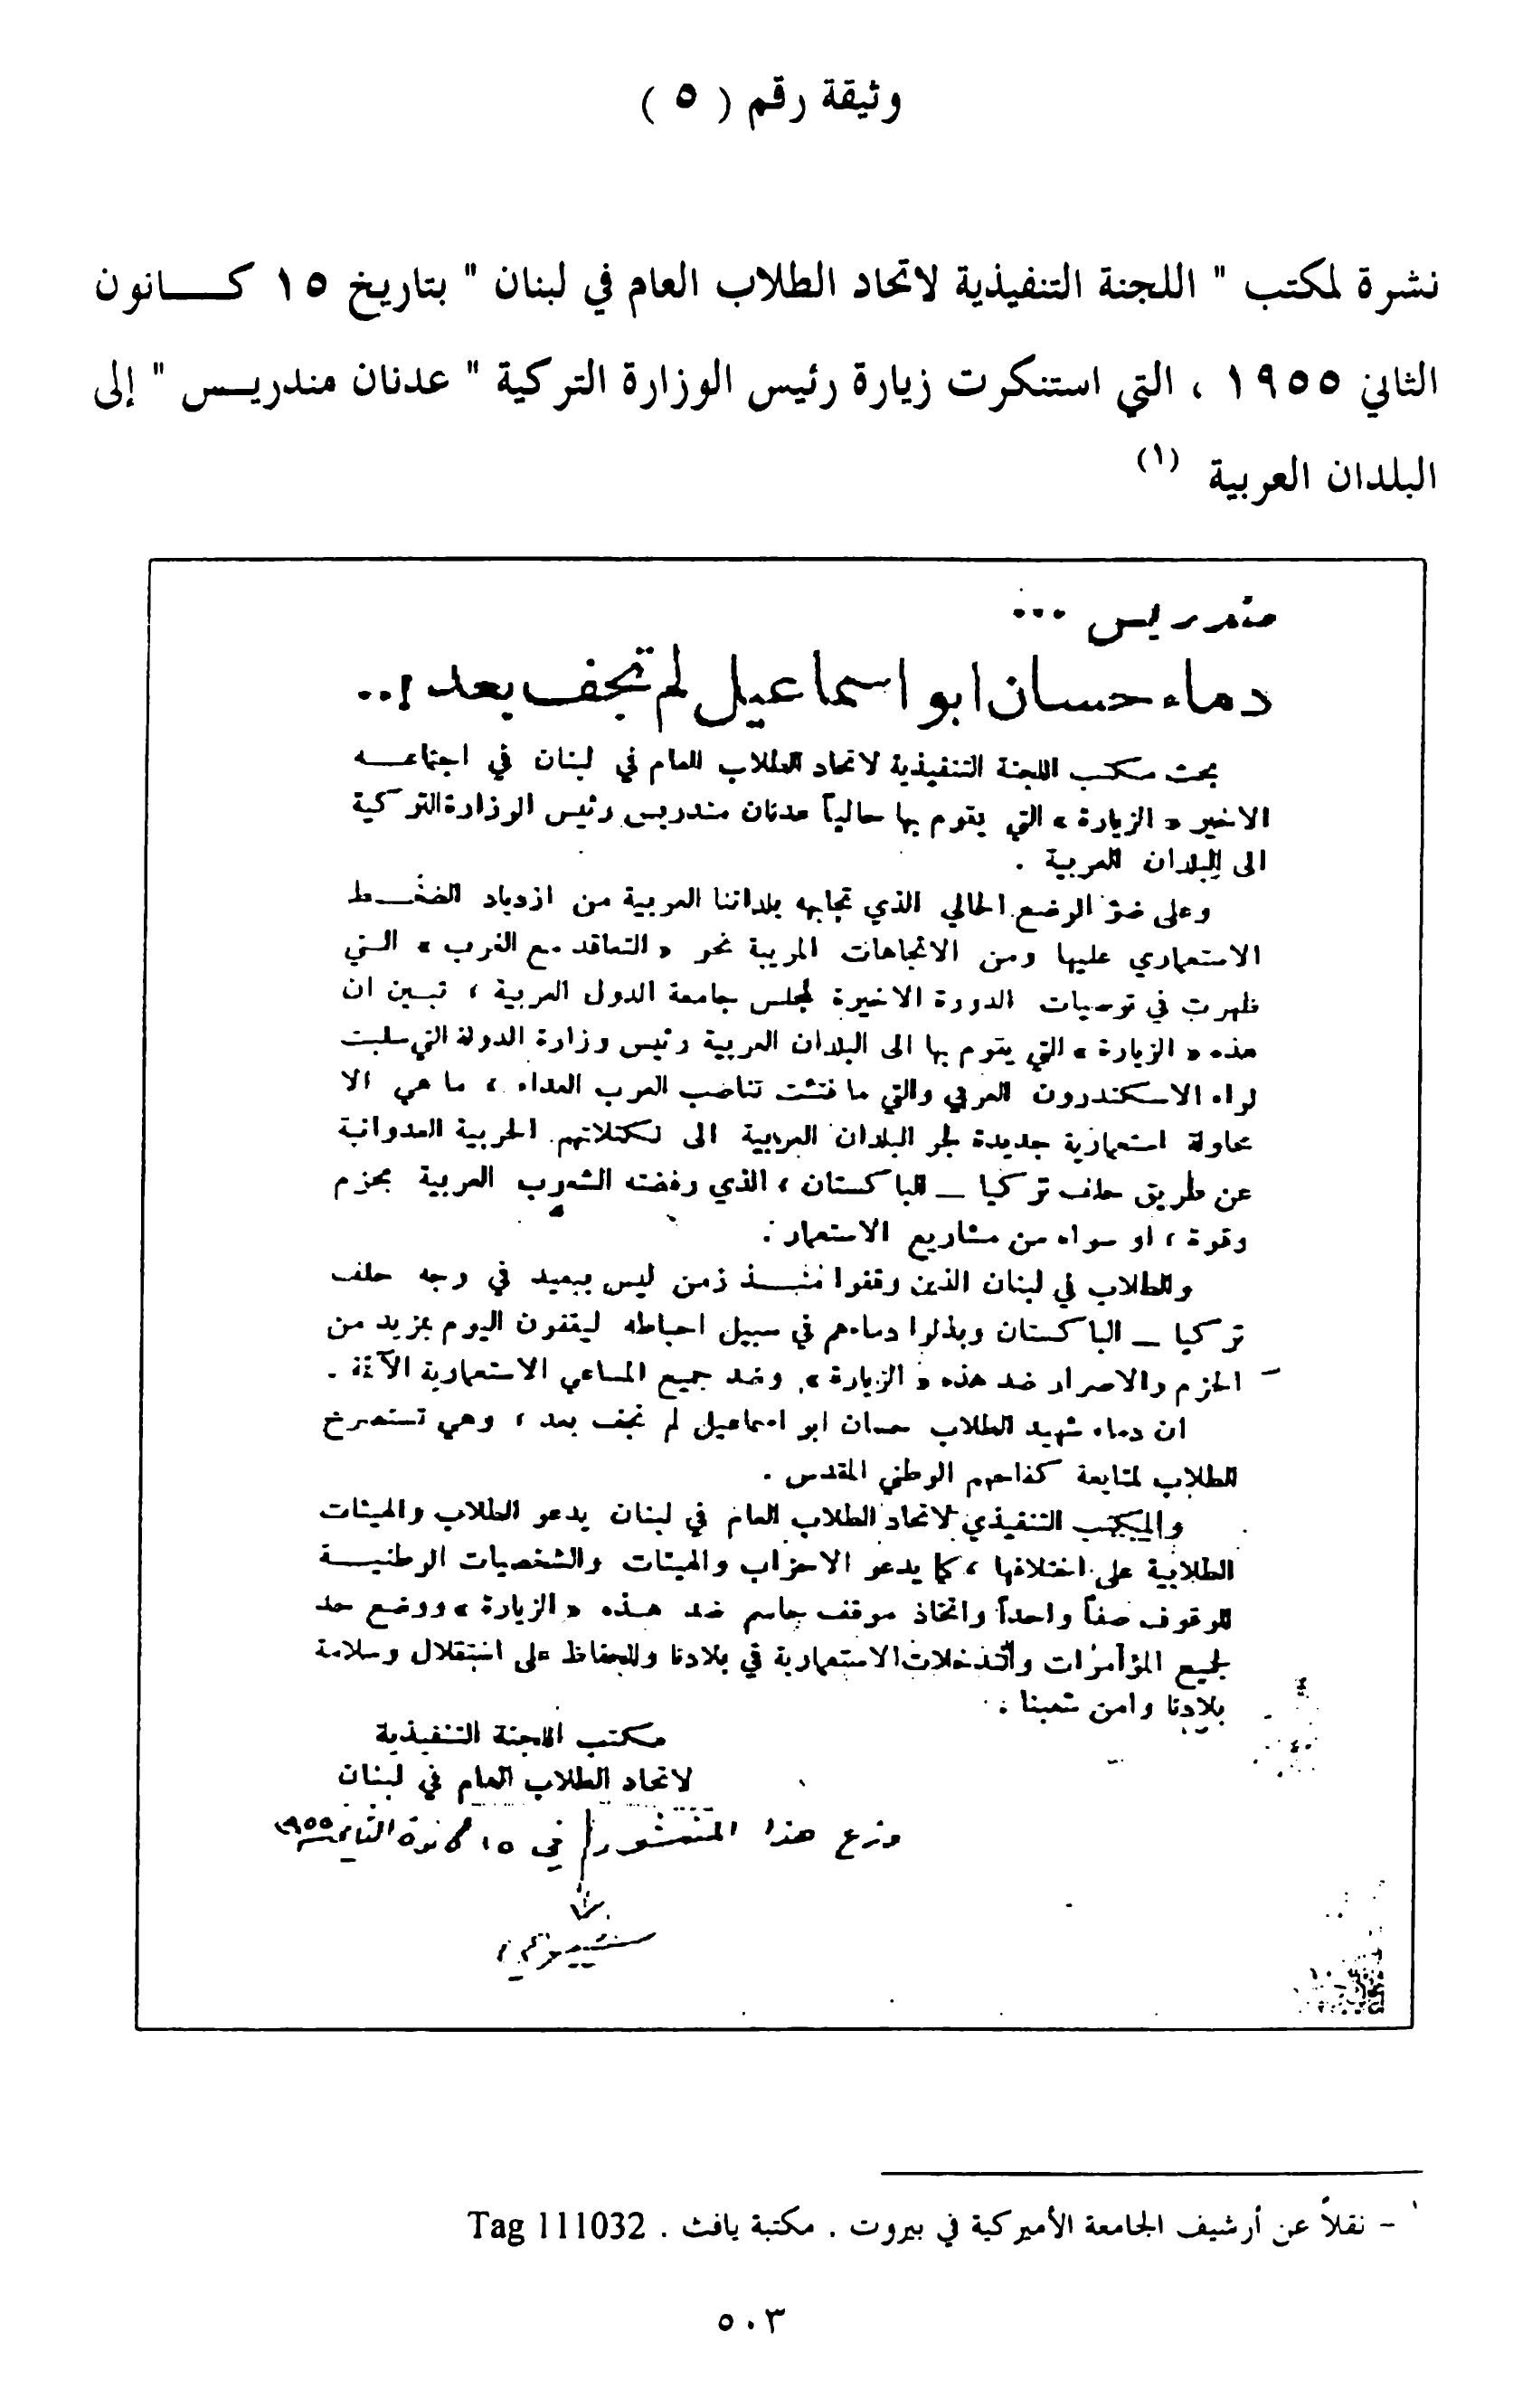 وثيقة رقم ( ٥ )
نشرة لمكتب " اللجنة التنفيذية لاتحاد الطلاب العام في لبنان " بتاريخ ١٥ كـــانون
الثاني ١٩٥٥ ، التي استنكرت زيارة رئيس الوزارة التركية " عدنان مندريـس " إلى
البلدان العربية (١)
مندريس ...
دماء حسان ابو اسماعيل لم تجف بعد !..
بحث مكتب اللجنة التنفيذية لاتحاد الطلاب العام في لبنان في اجتماعـــه
الاخير « الزيارة » التي يقوم بها حالياً عدنان مندريس رئيس الوزارة التركية
الى البلدان العربية .
وعلى ضؤ الوضع الحالي الذي تجابهه بلداننا العربية من ازدياد الضغـــط
الاستعماري عليها ومن الاتجاهات المريبة نحو « التعاقد مع الغرب » الـتي
ظهرت في توصيات الدورة الاخيرة لمجلس جامعة الدول العربية ، تبـين ان
هذه « الزيارة » التي يقوم بها الى البلدان العربية رئيس وزارة الدولة التي سلبت
لواء الاسكندرون العربي والتي ما فتئت تناصب العرب العداء ، ما هي الا
محاولة استعمارية جديدة لجر البلدان العربية الى تكتلاتهم الحربية العدوانية
عن طريق حلف تركيا ــ الباكستان ، الذي رفضته الشعوب العربية بحزم
وقوة ، او سواه من مشاريع الاستعمار .
والطلاب في لبنان الذين وقفوا منـــذ زمن ليس ببعيد في وجه حلف
تركيا ــ الباكستان وبذلوا دماءهم في سبيل احباطه ليقفون اليوم بمزيد من
الحزم والاصرار ضد هذه « الزيارة » ، وضد جميع المساعي الاستعمارية الآثمة .
ان دماء شهيد الطلاب حسان ابو اسماعيل لم تجف بعد ، وهي تستصرخ
الطلاب لمتابعة كفاحهم الوطني المقدس .
والمكتب التنفيذي لاتحاد الطلاب العام في لبنان يدعو الطلاب والهيئات
الطلابية على اختلافها ، كما يدعو الاحزاب والهيئات والشخصيات الوطنيـــة
للوقوف صفاً واحداً واتخاذ موقف حاسم ضد هـذه « الزيارة » ووضع حد
لجميع المؤامرات والتدخلات الاستعمارية في بلادنا وللحفاظ على استقلال وسلامة
بلادنا وامن شعبنا .
مكتب اللجنة التنفيذية
لاتحاد الطلاب العام في لبنان
وزع هذا المنشور في ١٥ كانون الثاني ١٩٥٥
١ - نقلاً عن أرشيف الجامعة الأميركية في بيروت . مكتبة يافث . Tag 111032
٥٠٣